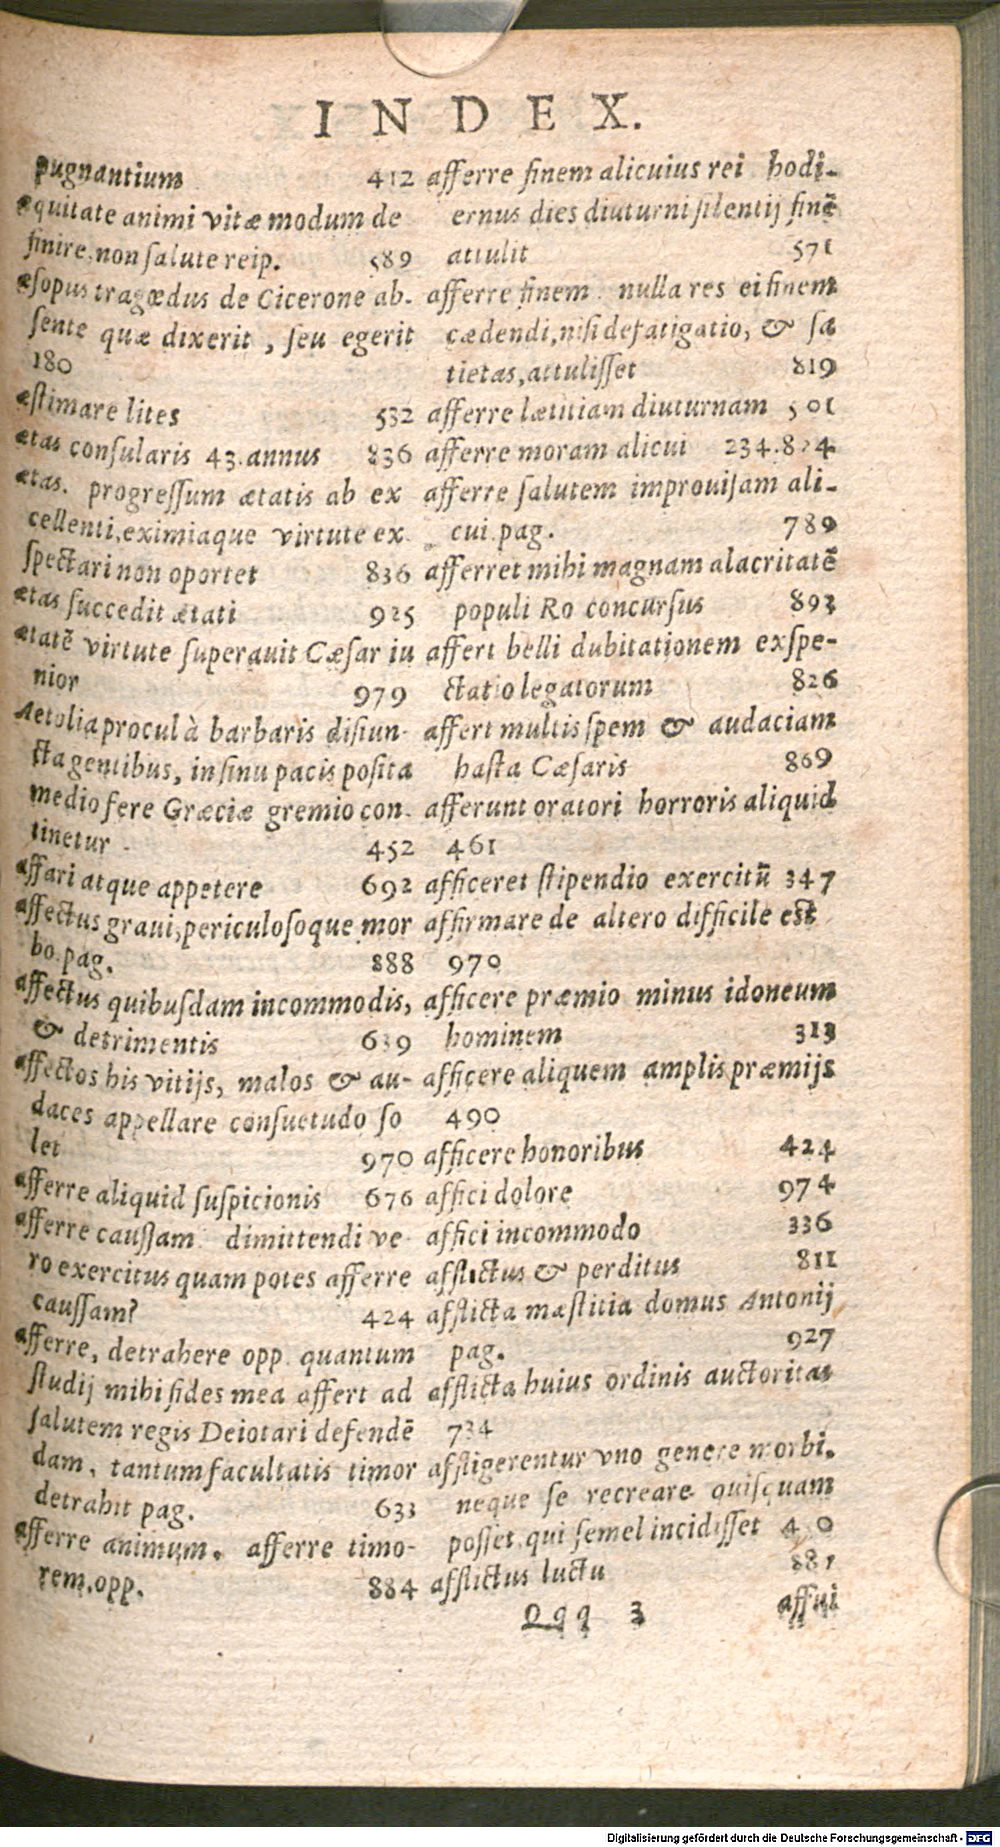 INDEX.
pugnantium 412
æquitate animi vitæ modum de
finire, non salute reip. 589
æsopus tragœdus de Cicerone ab-
sente quæ dixerit, seu egerit
180
æstimare lites 532
ætas consularis 43. annus 836
ætas. progressum ætatis ab ex
cellenti, eximiaque virtute ex
spectari non oportet 836
ætas succedit ætati 925
ætatē virtute superauit Cæsar iu
nior 979
Aetolia procul à barbaris disiun-
cta gentibus, in sinu pacis posita
medio fere Græciæ gremio con-
tinetur 452
affari atque appetere 692
affectus graui, periculosoque mor
bo. pag. 888
affectus quibusdam incommodis,
& detrimentis 639
affectos his vitijs, malos & au-
daces appellare consuetudo so
let 970
afferre aliquid suspicionis 676
afferre caussam dimittendi ve
ro exercitus quam potes afferre
caussam? 424
afferre, detrahere opp. quantum
studij mihi fides mea affert ad
salutem regis Deiotari defendē
dam, tantum facultatis timor
detrahit pag. 633
afferre animum. afferre timo-
rem. opp. 884
afferre finem alicuius rei hodi-
ernus dies diuturni silentij finē
attulit 571
afferre finem nulla res ei finem
cædendi, nisi defatigatio, & sa
tietas, attulisset 819
afferre lætitiam diuturnam 501
afferre moram alicui 234.824
afferre salutem improuisam ali-
cui. pag. 789
afferret mihi magnam alacritatē
populi Ro concursus 893
affert belli dubitationem exspe-
ctatio legatorum 826
affert multis spem & audaciam
hasta Cæsaris 869
afferunt oratori horroris aliquid
461
afficeret stipendio exercitū 347
affirmare de altero difficile est
970
afficere præmio minus idoneum
hominem 313
afficere aliquem amplis præmijs
490
afficere honoribus 424
affici dolore 974
affici incommodo 336
afflictus & perditus 811
afflicta mæstitia domus Antonij
pag. 927
afflicta huius ordinis auctoritas
734
affligerentur vno genere morbi.
neque se recreare quisquam
posset, qui semel incidisset
afflictus luctu 881
Qqq 3 affui
Digitalisierung gefördert durch die Deutsche Forschungsgemeinschaft - DFG